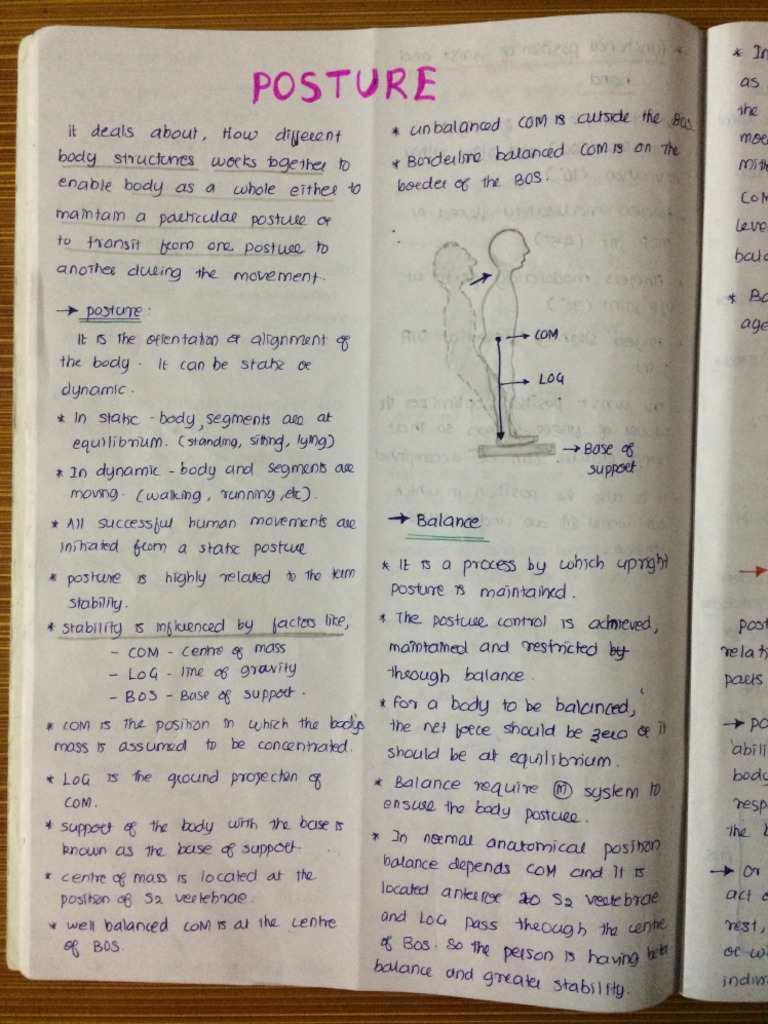 POSTURE
it deals about, How different
body structures works together to
enable body as a whole either to
maintain a particular posture or
to transit from one posture to
another during the movement.
→ posture:
It is the orientation or alignment of
the body. It can be static or
dynamic.
* In static - body, segments are at
equilibrium. (standing, sitting, lying)
* In dynamic - body and segments are
moving. (walking, running, etc).
* All successful human movements are
initiated from a static posture
* posture is highly related to the term
stability.
* stability is influenced by factors like,
- COM - centre of mass
- LOG - line of gravity
- BOS - Base of support.
* COM is the position in which the body's
mass is assumed to be concentrated.
* LOG is the ground projection of
COM.
* support of the body with the base is
known as the base of support.
* centre of mass is located at the
position of S2 vertebrae.
* well balanced COM is at the centre
of BOS.
* unbalanced COM is outside the BOS.
* Borderline balanced COM is on the
border of the BOS.
→ COM
→ LOG
→ Base of
support
→ Balance
* It is a process by which upright
posture is maintained.
* The posture control is achieved,
maintained and restricted by
through balance.
* For a body to be balanced,
the net force should be zero or it
should be at equilibrium.
* Balance require (m) system to
ensure the body posture.
* In normal anatomical position
balance depends COM and it is
located anterior to S2 vertebrae
and LOG pass through the centre
of BOS. So the person is having better
balance and greater stability.
* In
as
the
COM
leve
bala
* Ba
age
→
post
relati
parts
→ po
abili
body
resp
the b
→ or
act o
rest,
or wi
indivi